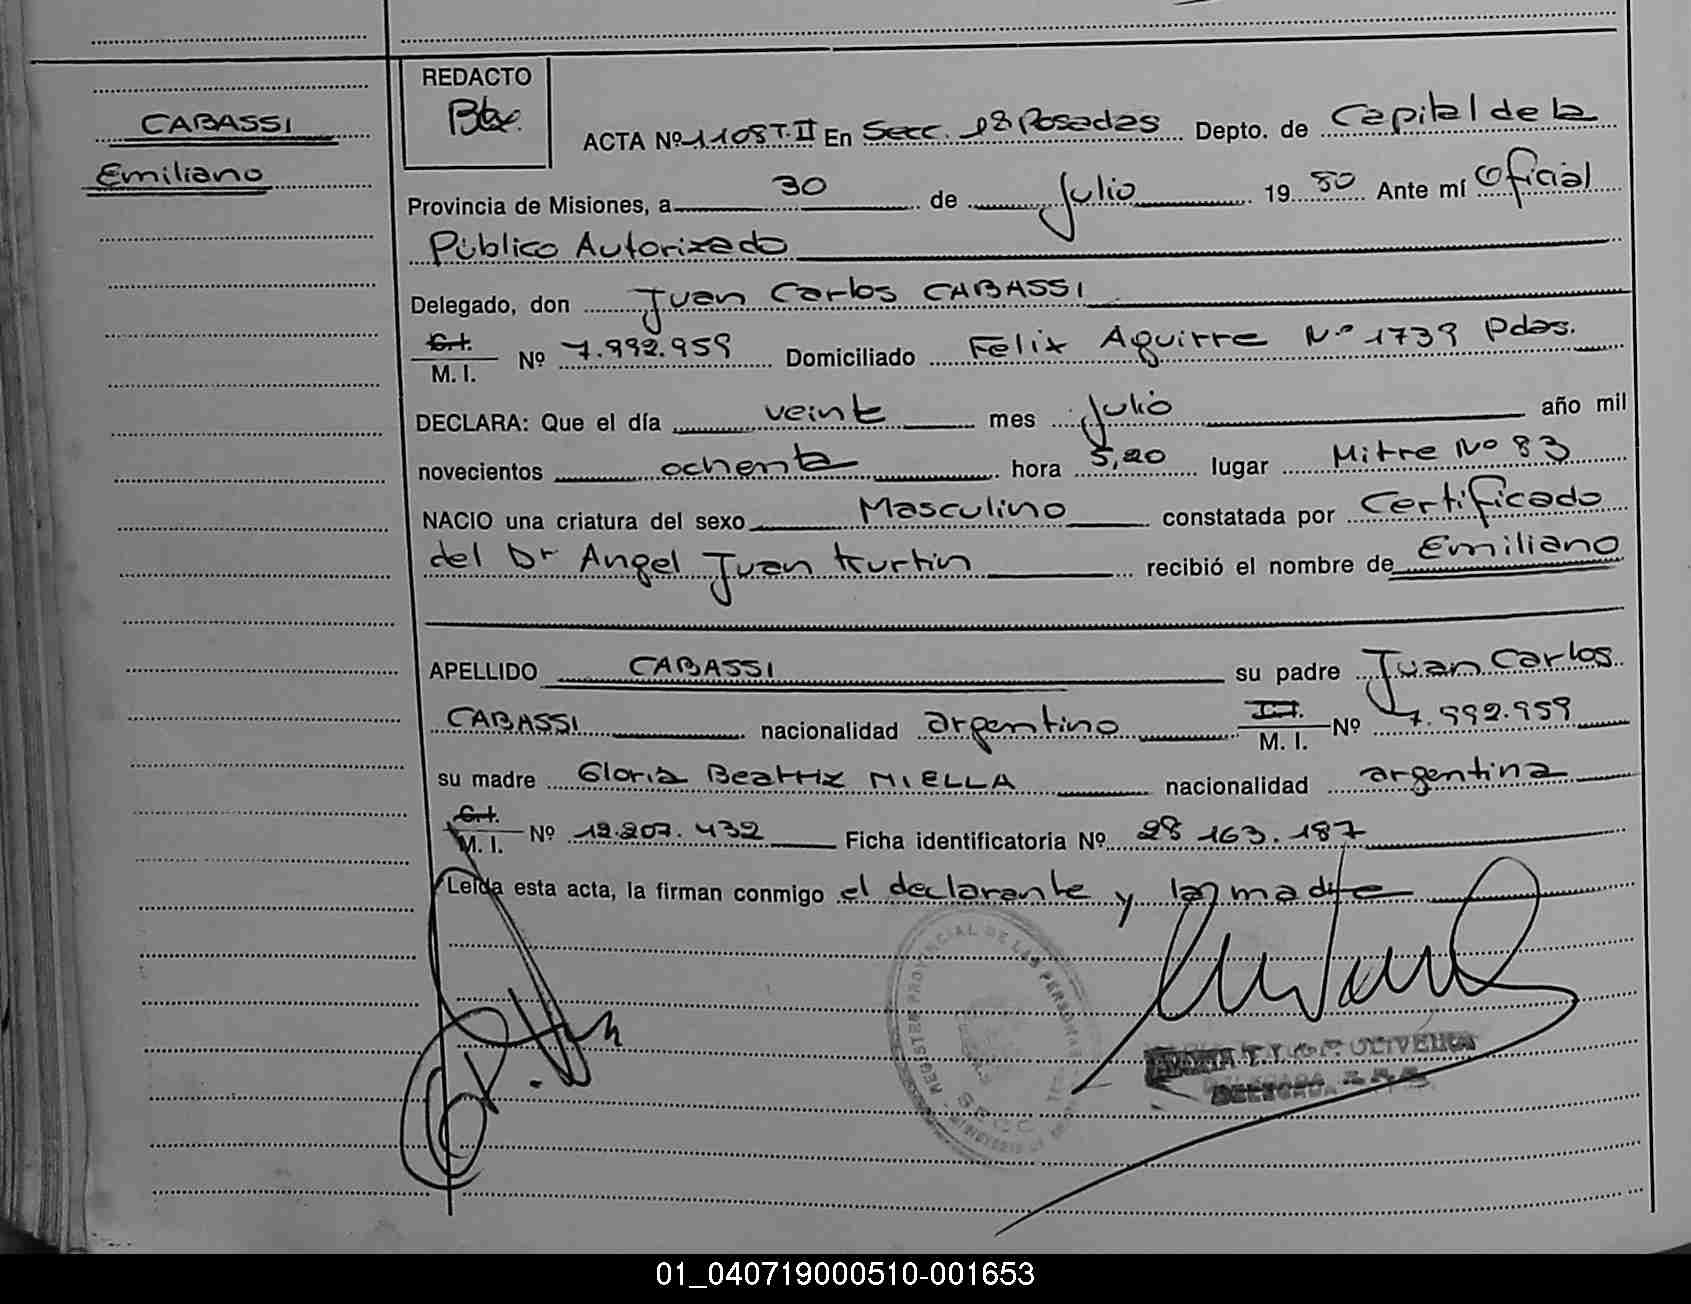 REDACTO
CABASSI
Emiliano
ACTA Nº 1108 T. II En Secc. 1ª Posadas Depto. de Capital de la
Provincia de Misiones, a 30 de Julio 19 80 Ante mí Oficial
Público Autorizado
Delegado, don Juan Carlos CABASSI
C.I.
M. I. Nº 7.992.959 Domiciliado Felix Aguirre Nº 1739 Pdas.
DECLARA: Que el día veinte mes Julio año mil
novecientos ochenta hora 5,20 lugar Mitre Nº 83
NACIO una criatura del sexo Masculino constatada por Certificado
del Dr Angel Juan Kurtin recibió el nombre de Emiliano
APELLIDO CABASSI su padre Juan Carlos
CABASSI nacionalidad argentino M. I. Nº 7.992.959
su madre Gloria Beatriz MIELLA nacionalidad argentina
C.I.
M. I. Nº 12.207.432 Ficha identificatoria Nº 28 163.187
Leída esta acta, la firman conmigo el declarante y la madre
01_040719000510-001653